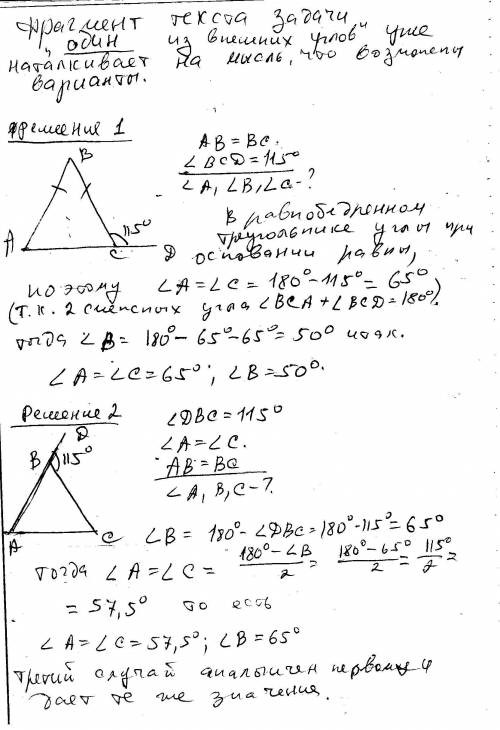 Фрагмент текста задачи
"один из внешних углов" уже
наталкивает на мысль, что возможны
варианты.
Решение 1
AB = BC.
∠BCD = 115°
∠A, ∠B, ∠C - ?
B
A
115°
C
D
В равнобедренном
треугольнике углы при
основании равны,
поэтому ∠A = ∠C = 180° - 115° = 65°
(т.к. 2 смежных угла ∠BCA + ∠BCD = 180°).
тогда ∠B = 180° - 65° - 65° = 50° итак.
∠A = ∠C = 65°; ∠B = 50°.
Решение 2
D
B
115°
A
C
∠DBC = 115°
∠A = ∠C.
AB = BC
∠A, B, C - ?.
∠B = 180° - ∠DBC = 180° - 115° = 65°
тогда ∠A = ∠C = (180° - ∠B)/2 = (180° - 65°)/2 = 115°/2 =
= 57,5° то есть
∠A = ∠C = 57,5°; ∠B = 65°
третий случай аналогичен первому и
дает те же значения.